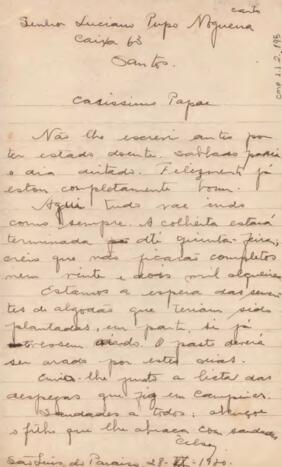 carta
Senhor Luciano Pupo Nogueira
Caixa 63
Santos.
Carissimo Papae
Não lhe escrevi antes por
ter estado doente. Sabbado passei
o dia deitado. Felizmente já
estou completamente bom.
Aqui tudo vae indo
como sempre. A colheita estará
terminada até quinta-feira,
creio que não ficarão completos
nem vinte e dois mil alqueires
Estamos a espera das semen
tes de algodão que teriam sido
plantadas, em parte, si já
estivessem. O pasto deverá
ser arado por estes dias.
Envio-lhe junto a lista das
despezas que fiz em Campinas.
Saudades a todos; abençoe
o filho que lhe abraça com saudades
São Luis do Paraiso, 28-